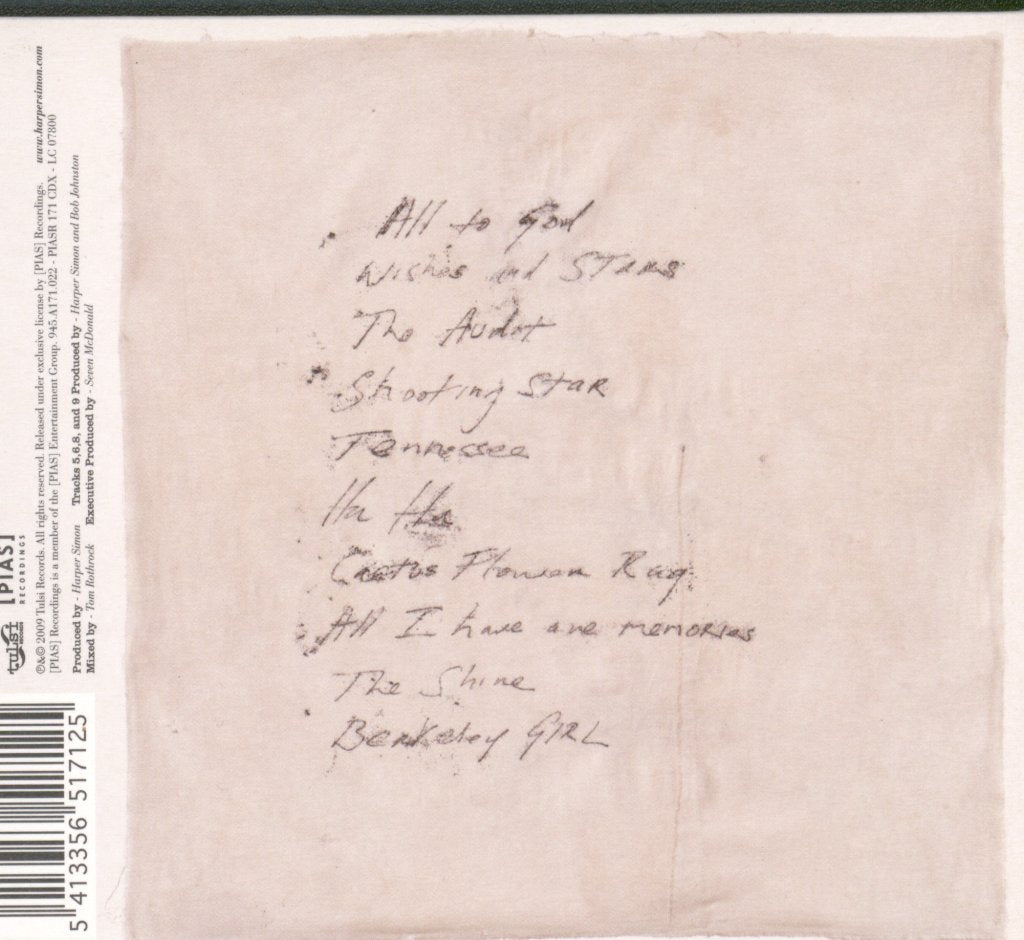 All to God
Wishes and Stars
The Audit
Shooting Star
Tennessee
Ha Ha
Cactus Flower Rag
All I have are memories
The Shine
Berkeley GIRL
tulsi
RECORDS
[PIAS]
RECORDINGS
℗&© 2009 Tulsi Records. All rights reserved. Released under exclusive license by [PIAS] Recordings. www.harpersimon.com
[PIAS] Recordings is a member of the [PIAS] Entertainment Group. 945.A171.022 - PIASR 171 CDX - LC 07800
Produced by - Harper Simon Tracks 5,6,8, and 9 Produced by - Harper Simon and Bob Johnston
Mixed by - Tom Rothrock Executive Produced by - Seven McDonald
5 413356 517125